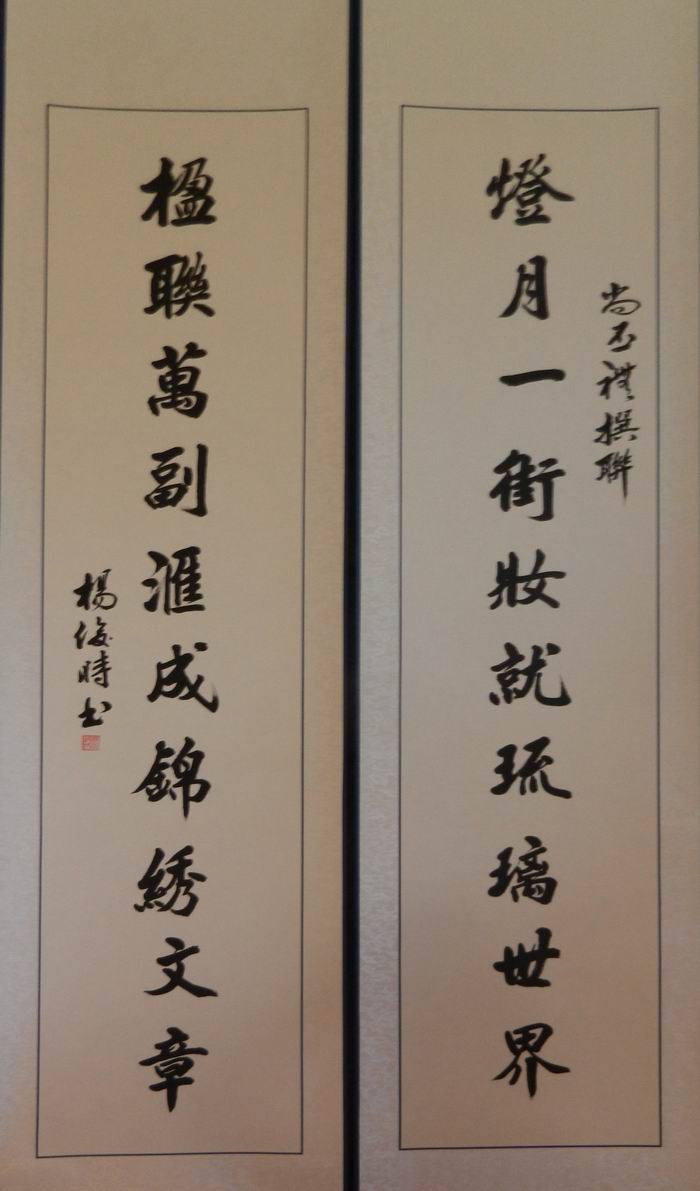 燈月一街妝就琉璃世界
尚丕禮撰聯
楹聯萬副滙成錦綉文章
楊俊時书